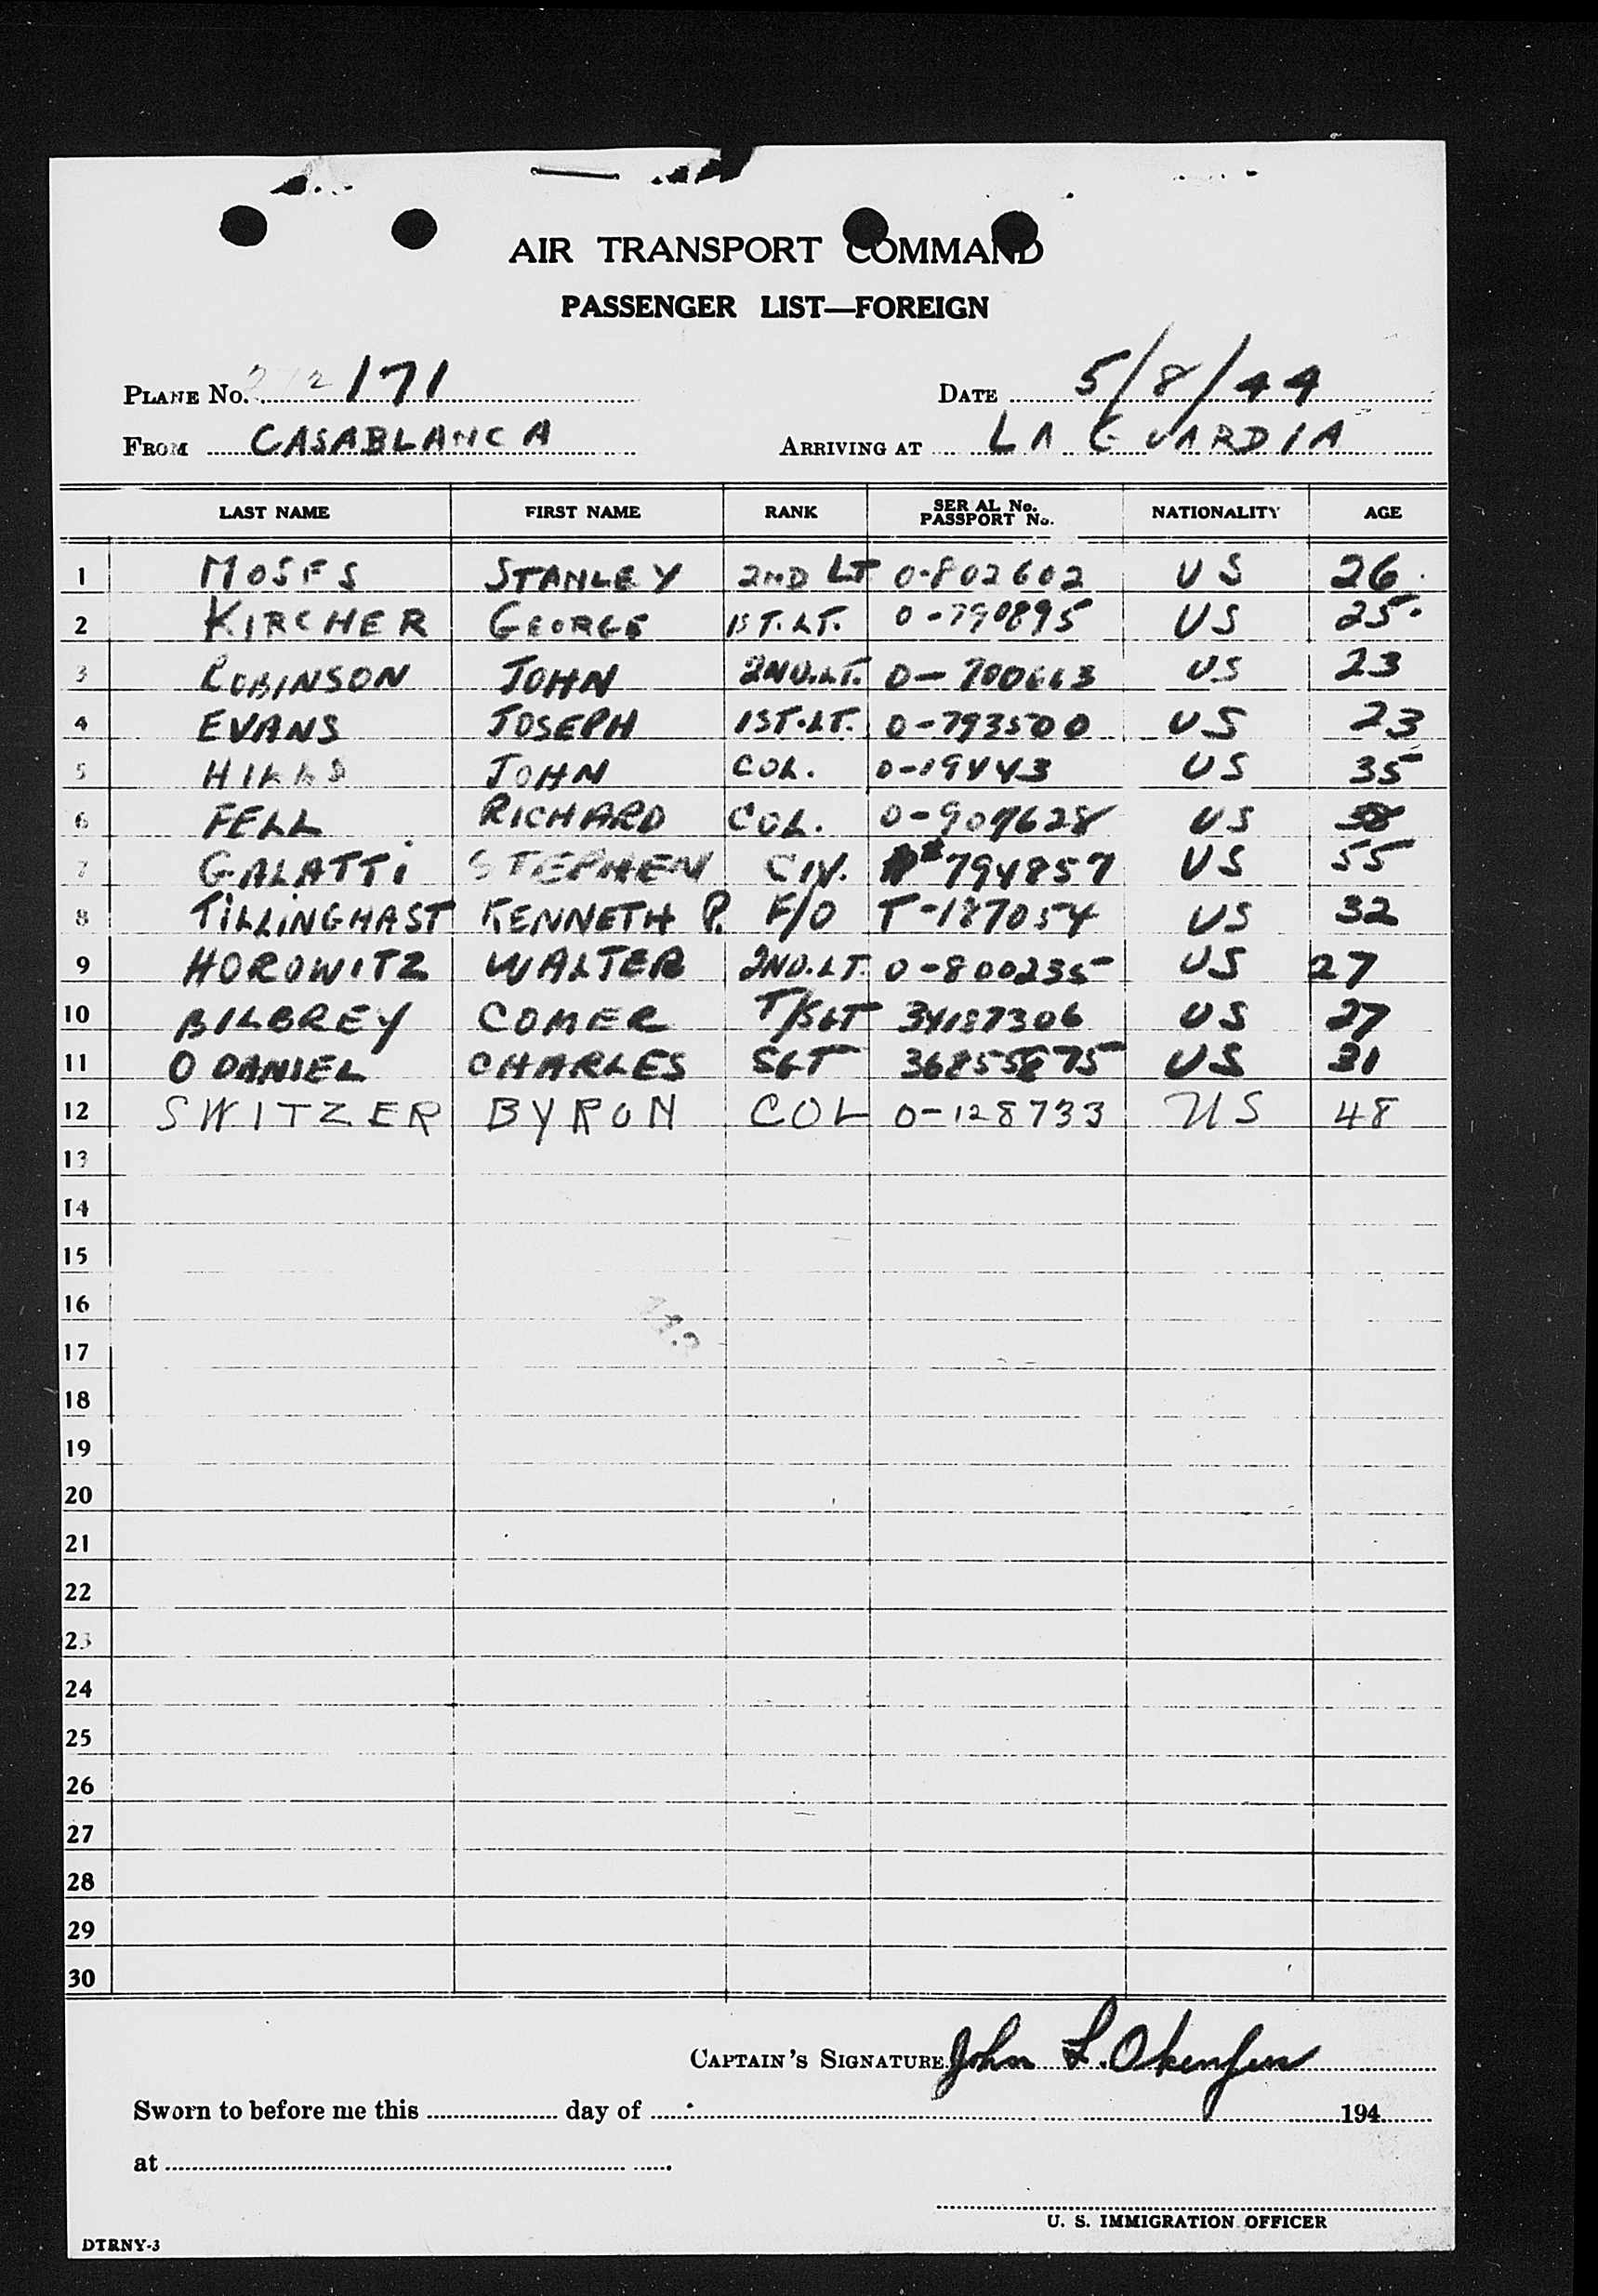 AIR TRANSPORT COMMAND
PASSENGER LIST—FOREIGN
PLANE No. 171 DATE 5/8/44
FROM CASABLANCA ARRIVING AT LA GUARDIA
LAST NAME FIRST NAME RANK SERIAL No. PASSPORT No. NATIONALITY AGE
1 MOSES STANLEY 2ND LT 0-802602 US 26
2 KIRCHER GEORGE 1ST.LT. 0-790895 US 25
3 ROBINSON JOHN 2ND.LT. US 23
4 EVANS JOSEPH 1ST.LT. 0-793500 US 23
5 JOHN COL. 0-19443 US 35
6 FELL RICHARD COL. 0-907628 US
7 GALATTI STEPHEN CIV. 794857 US 55
8 TILLINGHAST KENNETH P. F/O T-187054 US 32
9 HOROWITZ WALTER 2ND.LT. 0-800235 US 27
10 BILBREY COMER T/SGT 34187306 US 27
11 O DANIEL CHARLES SGT US 31
12 SWITZER BYRON COL 0-128733 US 48
13
14
15
16
17
18
19
20
21
22
23
24
25
26
27
28
29
30
CAPTAIN'S SIGNATURE John L.
Sworn to before me this day of 194
at
U. S. IMMIGRATION OFFICER
DTRNY-3